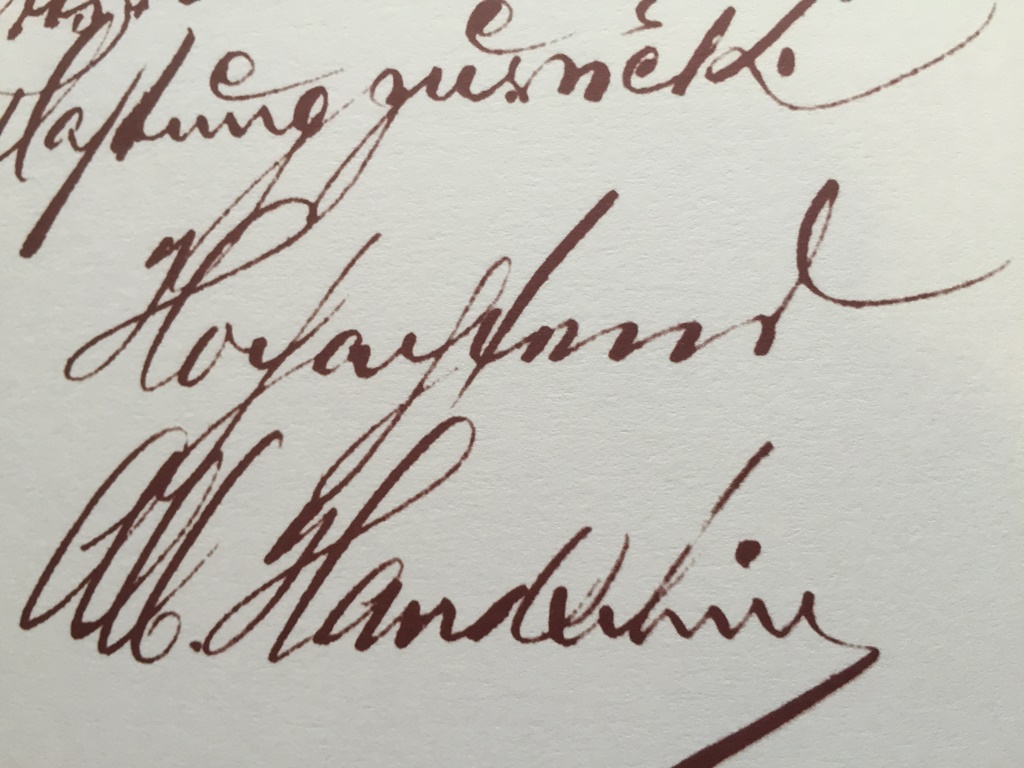 Haftung zurück.
Hochachtend
Alb. Handschin